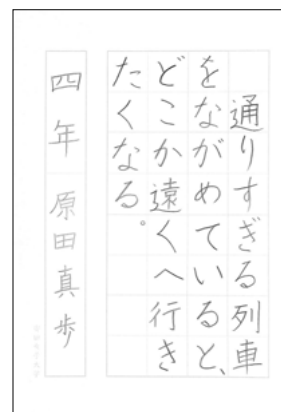 通りすぎる列車
をながめていると、
どこか遠くへ行き
たくなる。
四年 原田真歩